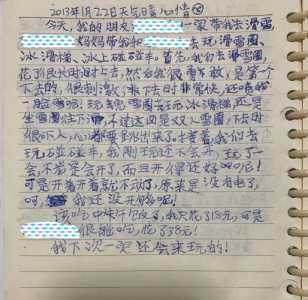 2013年1月22日天气晴心情
今天,我的朋友一家带我去滑雪,
妈妈带我和去玩滑雪圈、
冰滑梯、冰上碰碰车。首先,我们去滑雪圈,
花了很长时才上去,然后我很勇敢,是第一个
下去的,很刺激,滑下去时非常快,还喷我
一脸雪呢!玩完雪圈去玩冰滑梯,还是
坐雪圈往下滑,不过这回是双人雪圈,下去时
很吓人,心都要跳出来了。接着,我们去
玩碰碰车,我刚开始还不会开,玩了一
会,不一会会开了,而且开得还好呢!
可是开着开着就不动了,原来是没电了,
呵,我还没开够呢!
该吃中午饭了,我只花了18元,可是
很能吃,花了38元!
我下次一定还会来玩的!